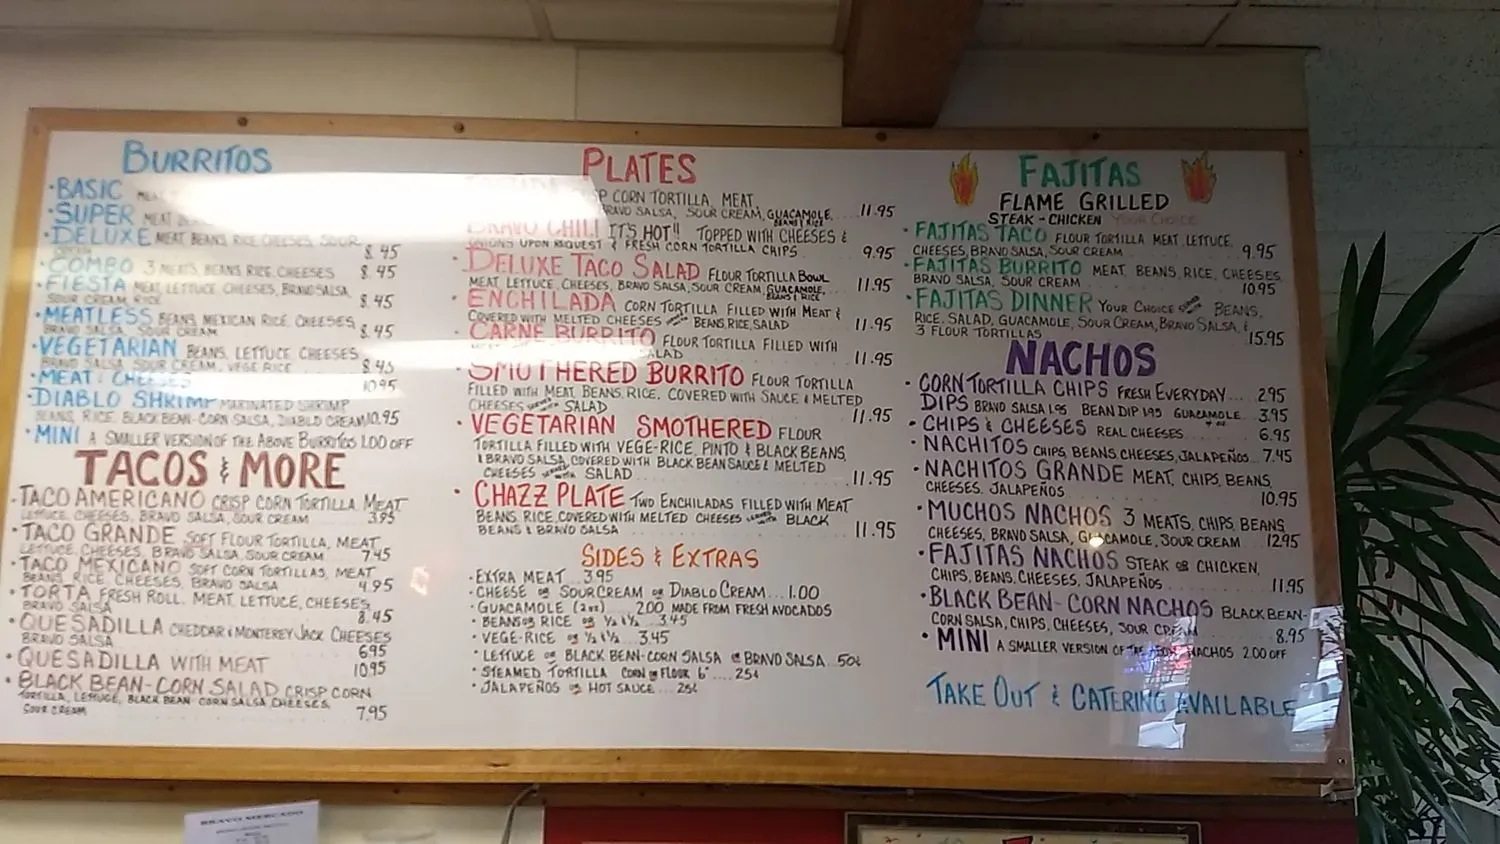 BURRITOS
• BASIC
• SUPER MEAT
• DELUXE MEAT BEANS RICE CHEESES, SOUR
8.45
• COMBO 3 MEATS, BEANS, RICE, CHEESES 8.45
• FIESTA MEAT, LETTUCE, CHEESES, BRAVO SALSA,
SOUR CREAM, RICE 8.45
• MEATLESS BEANS, MEXICAN RICE, CHEESES,
BRAVO SALSA, SOUR CREAM 8.45
• VEGETARIAN BEANS, LETTUCE, CHEESES
BRAVO SALSA, SOUR CREAM, VEGE RICE 8.45
• MEAT & CHEESES 10.95
• DIABLO SHRIMP MARINATED SHRIMP
BEANS, RICE, BLACK BEAN-CORN SALSA, DIABLO CREAM 10.95
• MINI A SMALLER VERSION OF THE ABOVE BURRITOS 1.00 OFF
TACOS & MORE
• TACO AMERICANO CRISP CORN TORTILLA, MEAT
LETTUCE, CHEESES, BRAVO SALSA, SOUR CREAM 3.95
• TACO GRANDE SOFT FLOUR TORTILLA, MEAT,
LETTUCE, CHEESES, BRAVO SALSA, SOUR CREAM 7.45
• TACO MEXICANO SOFT CORN TORTILLAS, MEAT
BEANS, RICE, CHEESES, BRAVO SALSA 4.95
• TORTA FRESH ROLL, MEAT, LETTUCE, CHEESES,
BRAVO SALSA 8.45
• QUESADILLA CHEDDAR & MONTEREY JACK CHEESES
BRAVO SALSA 6.95
• QUESADILLA WITH MEAT 10.95
• BLACK BEAN-CORN SALAD CRISP CORN
TORTILLA, LETTUCE, BLACK BEAN-CORN SALSA, CHEESES,
SOUR CREAM 7.95
PLATES
CORN TORTILLA, MEAT,
BRAVO SALSA, SOUR CREAM, GUACAMOLE, BEANS & RICE ...11.95
• BRAVO CHILI IT'S HOT!! TOPPED WITH CHEESES &
ONIONS UPON REQUEST & FRESH CORN TORTILLA CHIPS 9.95
• DELUXE TACO SALAD FLOUR TORTILLA BOWL
MEAT, LETTUCE, CHEESES, BRAVO SALSA, SOUR CREAM, GUACAMOLE, BEANS & RICE 11.95
• ENCHILADA CORN TORTILLA FILLED WITH MEAT &
COVERED WITH MELTED CHEESES SERVED WITH BEANS, RICE, SALAD 11.95
• CARNE BURRITO FLOUR TORTILLA FILLED WITH
SALAD 11.95
• SMOTHERED BURRITO FLOUR TORTILLA
FILLED WITH MEAT, BEANS, RICE, COVERED WITH SAUCE & MELTED
CHEESES SERVED WITH SALAD 11.95
• VEGETARIAN SMOTHERED FLOUR
TORTILLA FILLED WITH VEGE-RICE, PINTO & BLACK BEANS,
& BRAVO SALSA, COVERED WITH BLACK BEAN SAUCE & MELTED
CHEESES SERVED WITH SALAD 11.95
• CHAZZ PLATE TWO ENCHILADAS FILLED WITH MEAT
BEANS, RICE, COVERED WITH MELTED CHEESES SERVED WITH BLACK
BEANS & BRAVO SALSA 11.95
SIDES & EXTRAS
• EXTRA MEAT... 3.95
• CHEESE OR SOUR CREAM OR DIABLO CREAM ... 1.00
• GUACAMOLE (2oz) .... 2.00 MADE FROM FRESH AVOCADOS
• BEANS OR RICE OR ½ & ½... 3.45
• VEGE-RICE OR ½ & ½... 3.45
• LETTUCE OR BLACK BEAN-CORN SALSA OR BRAVO SALSA .. 50¢
• STEAMED TORTILLA CORN OR FLOUR 6" .... 25¢
• JALAPEÑOS OR HOT SAUCE ... 25¢
FAJITAS
FLAME GRILLED
STEAK - CHICKEN YOUR CHOICE
• FAJITAS TACO FLOUR TORTILLA MEAT, LETTUCE,
CHEESES, BRAVO SALSA, SOUR CREAM 9.95
• FAJITAS BURRITO MEAT, BEANS, RICE, CHEESES,
BRAVO SALSA, SOUR CREAM 10.95
• FAJITAS DINNER YOUR CHOICE SERVED WITH BEANS,
RICE, SALAD, GUACAMOLE, SOUR CREAM, BRAVO SALSA, &
3 FLOUR TORTILLAS 15.95
NACHOS
• CORN TORTILLA CHIPS FRESH EVERYDAY .... 2.95
DIPS BRAVO SALSA 1.95 BEAN DIP 1.95 GUACAMOLE 4 oz 3.95
• CHIPS & CHEESES REAL CHEESES 6.95
• NACHITOS CHIPS, BEANS, CHEESES, JALAPEÑOS ... 7.45
• NACHITOS GRANDE MEAT, CHIPS, BEANS,
CHEESES, JALAPEÑOS 10.95
• MUCHOS NACHOS 3 MEATS, CHIPS, BEANS,
CHEESES, BRAVO SALSA, GUACAMOLE, SOUR CREAM 12.95
• FAJITAS NACHOS STEAK OR CHICKEN,
CHIPS, BEANS, CHEESES, JALAPEÑOS 11.95
• BLACK BEAN-CORN NACHOS BLACK BEAN-
CORN SALSA, CHIPS, CHEESES, SOUR CREAM 8.95
• MINI A SMALLER VERSION OF THE ABOVE NACHOS 2.00 OFF
TAKE OUT & CATERING AVAILABLE
BRAVO MERCADO